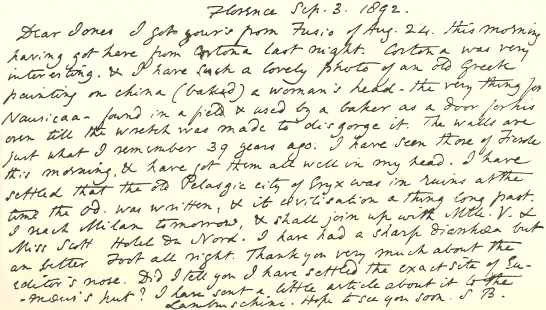 Florence Sep. 3. 1892.
Dear Jones I got yours from Fusio of Aug. 24. this morning
having got here from Cortona last night. Cortona was very
interesting. & I have such a lovely photo of an old Greek
painting on china (baked) a woman's head - the very thing for
Nausicaa - found in a field & used by a baker as a door for his
oven till the wretch was made to disgorge it. The walls are
just what I remember 39 years ago. I have seen those of Fiesole
this morning, & have got them all well in my head. I have
settled that the old Pelasgic city of Eryx was in ruins at the
time the Od. was written, & its civilisation a thing long past.
I reach Milan tomorrow, & shall join up with Mlle. V. &
Miss Scott Hotel du Nord. I have had a sharp diarrhœa but
am better Foot all right. Thank you very much about the
editor's nose. Did I tell you I have settled the exact site of Eu-
-mæus's hut? I have sent a little article about it to the
Lambruschini. Hope to see you soon. S B.